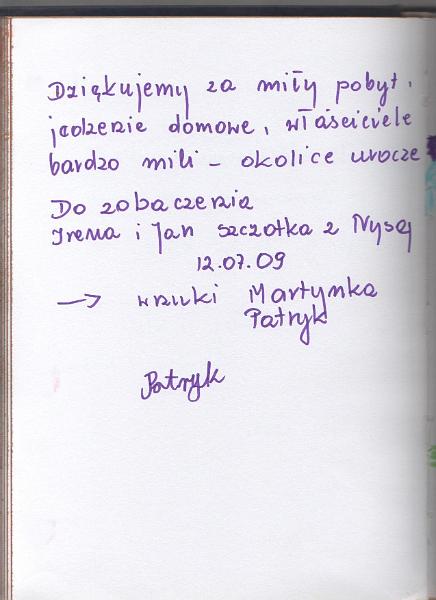 Dziękujemy za miły pobyt,
jedzenie domowe, właściciele
bardzo mili - okolice urocze
Do zobaczenia
Irena i Jan Szczotka z Nysy
12.07.09
→ wnuki Martynka
Patryk
Patryk